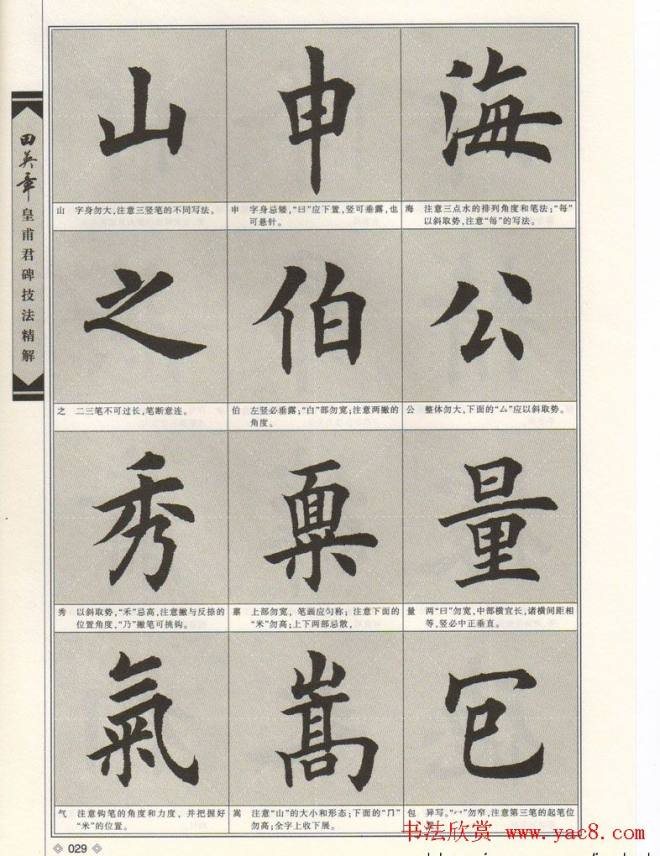 田英章
皇甫君碑技法精解
山 申 海
山 字身勿大,注意三竖笔的不同写法。
申 字身忌矮,“曰”应下置,竖可垂露,也
可悬针。
海 注意三点水的排列角度和笔法;“每”
以斜取势,注意“每”的写法。
之 伯 公
之 二三笔不可过长,笔断意连。
伯 左竖必垂露;“白”部勿宽;注意两撇的
角度。
公 整体勿大,下面的“厶”应以斜取势。
秀 量
秀 以斜取势,“禾”忌高,注意撇与反捺的
位置角度,“乃”撇笔可挑钩。
上部勿宽,笔画应匀称;注意下面的
“米”勿高;上下两部忌散。
量 两“曰”勿宽,中部横宜长,诸横间距相
等,竖必中正垂直。
氣 嵩 包
气 注意钩笔的角度和力度,并把握好
“米”的位置。
嵩 注意“山”的大小和形态;下面的“冂”
勿高;全字上收下展。
包 异写。“宀”勿窄,注意第三笔的起笔位
029
书法欣赏 www.yac8.com